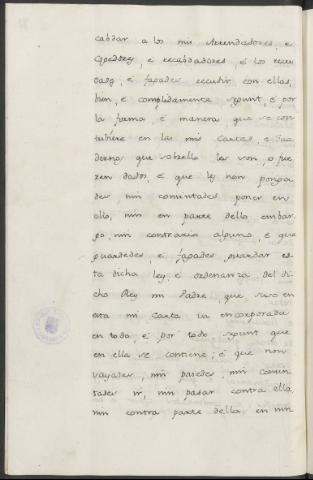 cabdar a los mis Arrendadores, e
e recabdadores, é los recep
é fagades recudir con ellas,
bien, é complidamente segunt, é por
la forma, é manera que se con
tubiere en las mis Cartas, é Qua
dernos que sobello les son, o fue
ren dados, é que les non pongades
nin consintades poner en
ello, nin en parte dello embar
go, nin contrario alguno, é que
guardedes, é fagades guardar es
ta dicha ley, é ordenanza del di
cho Rey mi Padre, que suso en
esta mi carta va encorporada
en todo, é por todo segunt que
en ella se contiene; é que non
vayades, nin pasedes, nin consin
tades ir, nin pasar contra ella,
nin contra parte della, en nin